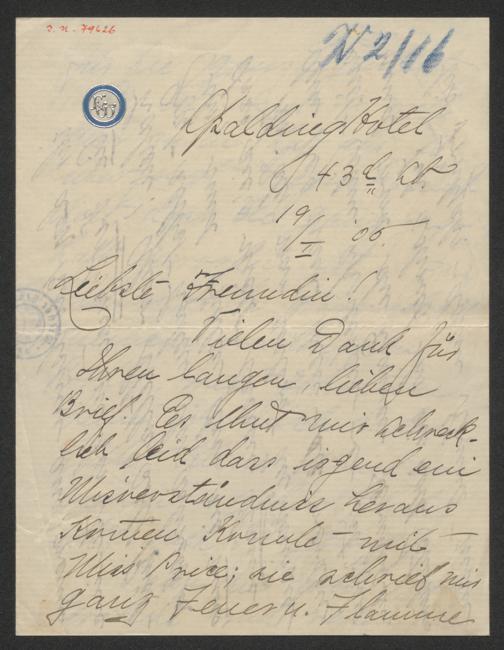 I.N. 79626
IV 2/116
Spalding Hotel
43d St.
19/I 06.
Liebste Freundin!
Vielen Dank für
Ihren langen, lieben
Brief. Es thut mir schreck-
lich leid dass irgend ein
Misverständniss heraus
kommen konnte – mit
Miss Price; sie schrieb mir
ganz Feuer u. Flamme